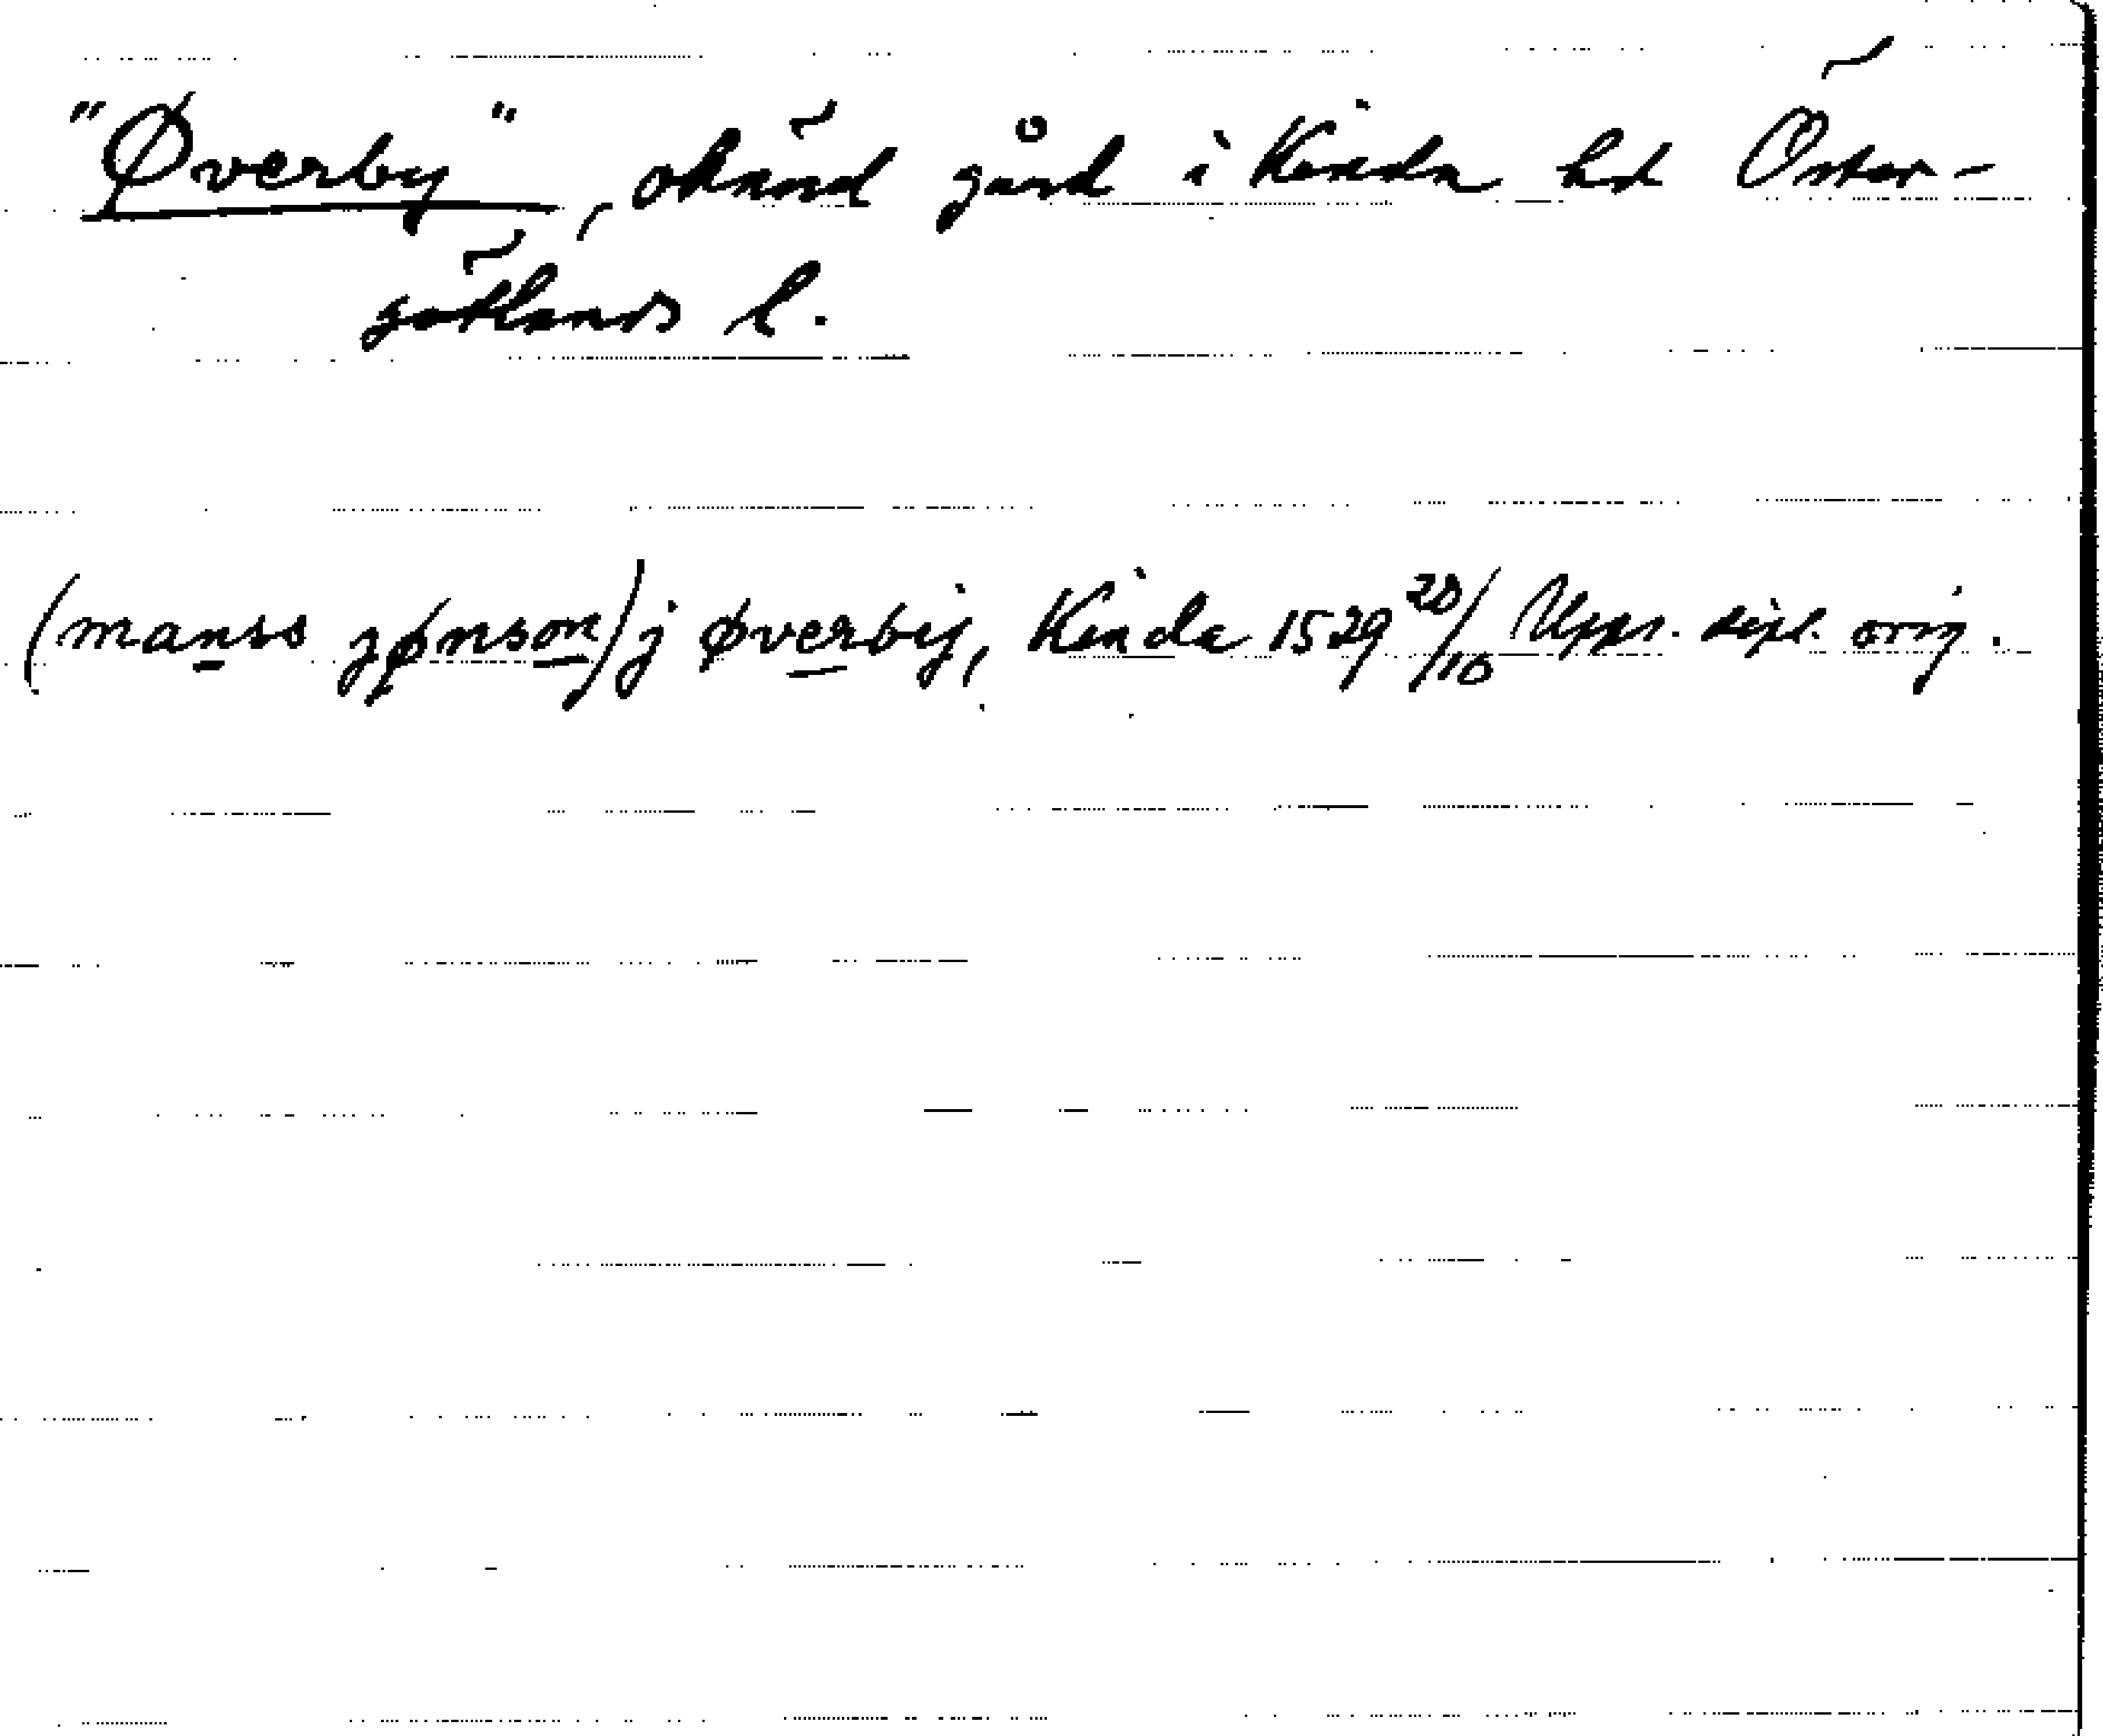 "Øverby", okänd gård i Kinda hd Öster-
götlands l.
(manss jønson) j øverbij, Kinda 1529 20/10 Upps. dipl. orig.